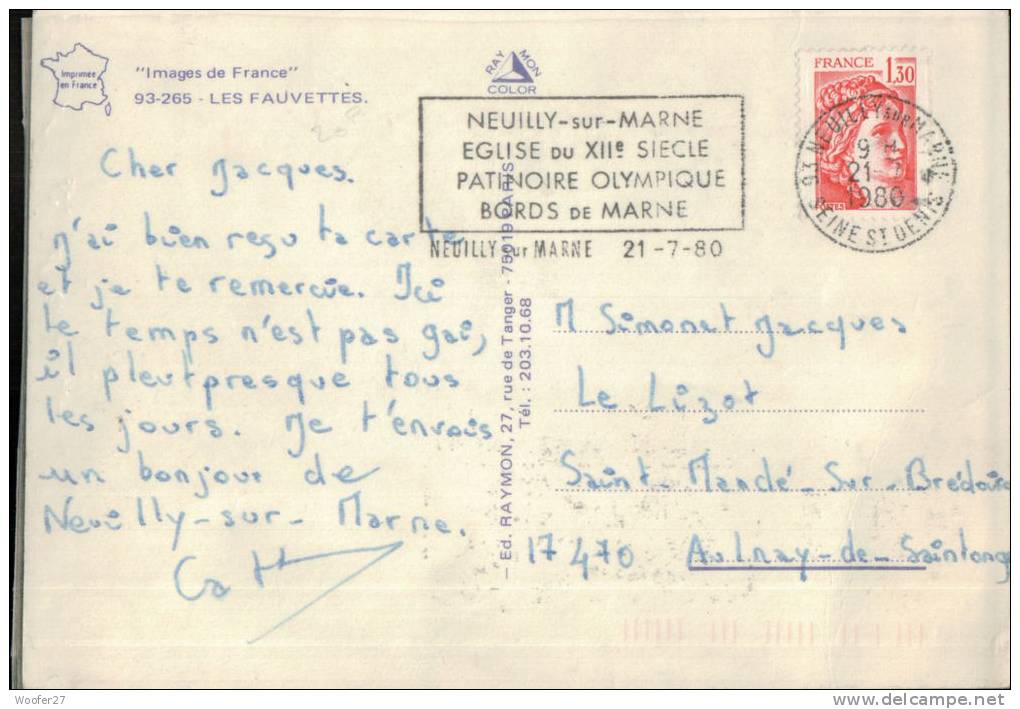 Imprimée
en France
"Images de France"
93-265 - LES FAUVETTES.
RAY MON
COLOR
NEUILLY-sur-MARNE
EGLISE DU XIIe SIECLE
PATINOIRE OLYMPIQUE
BORDS DE MARNE
NEUILLY sur MARNE 21-7-80
FRANCE 1,30
93 NEUILLY SUR MARNE
9 H
21
1980
SEINE ST DENIS
Cher Jacques.
J'ai bien reçu ta carte
et je te remercie. Ici
le temps n'est pas gai,
il pleut presque tous
les jours. Je t'envois
un bonjour de
Neuilly-sur-Marne.
Ed. RAYMON, 27, rue de Tanger - 75019 PARIS
Tél. : 203.10.68
M Simonet Jacques
Le Lizot
Saint-Mandé-Sur-Brédoire
17470 Aulnay-de-Saintonge
Woofer27
delcampe.net